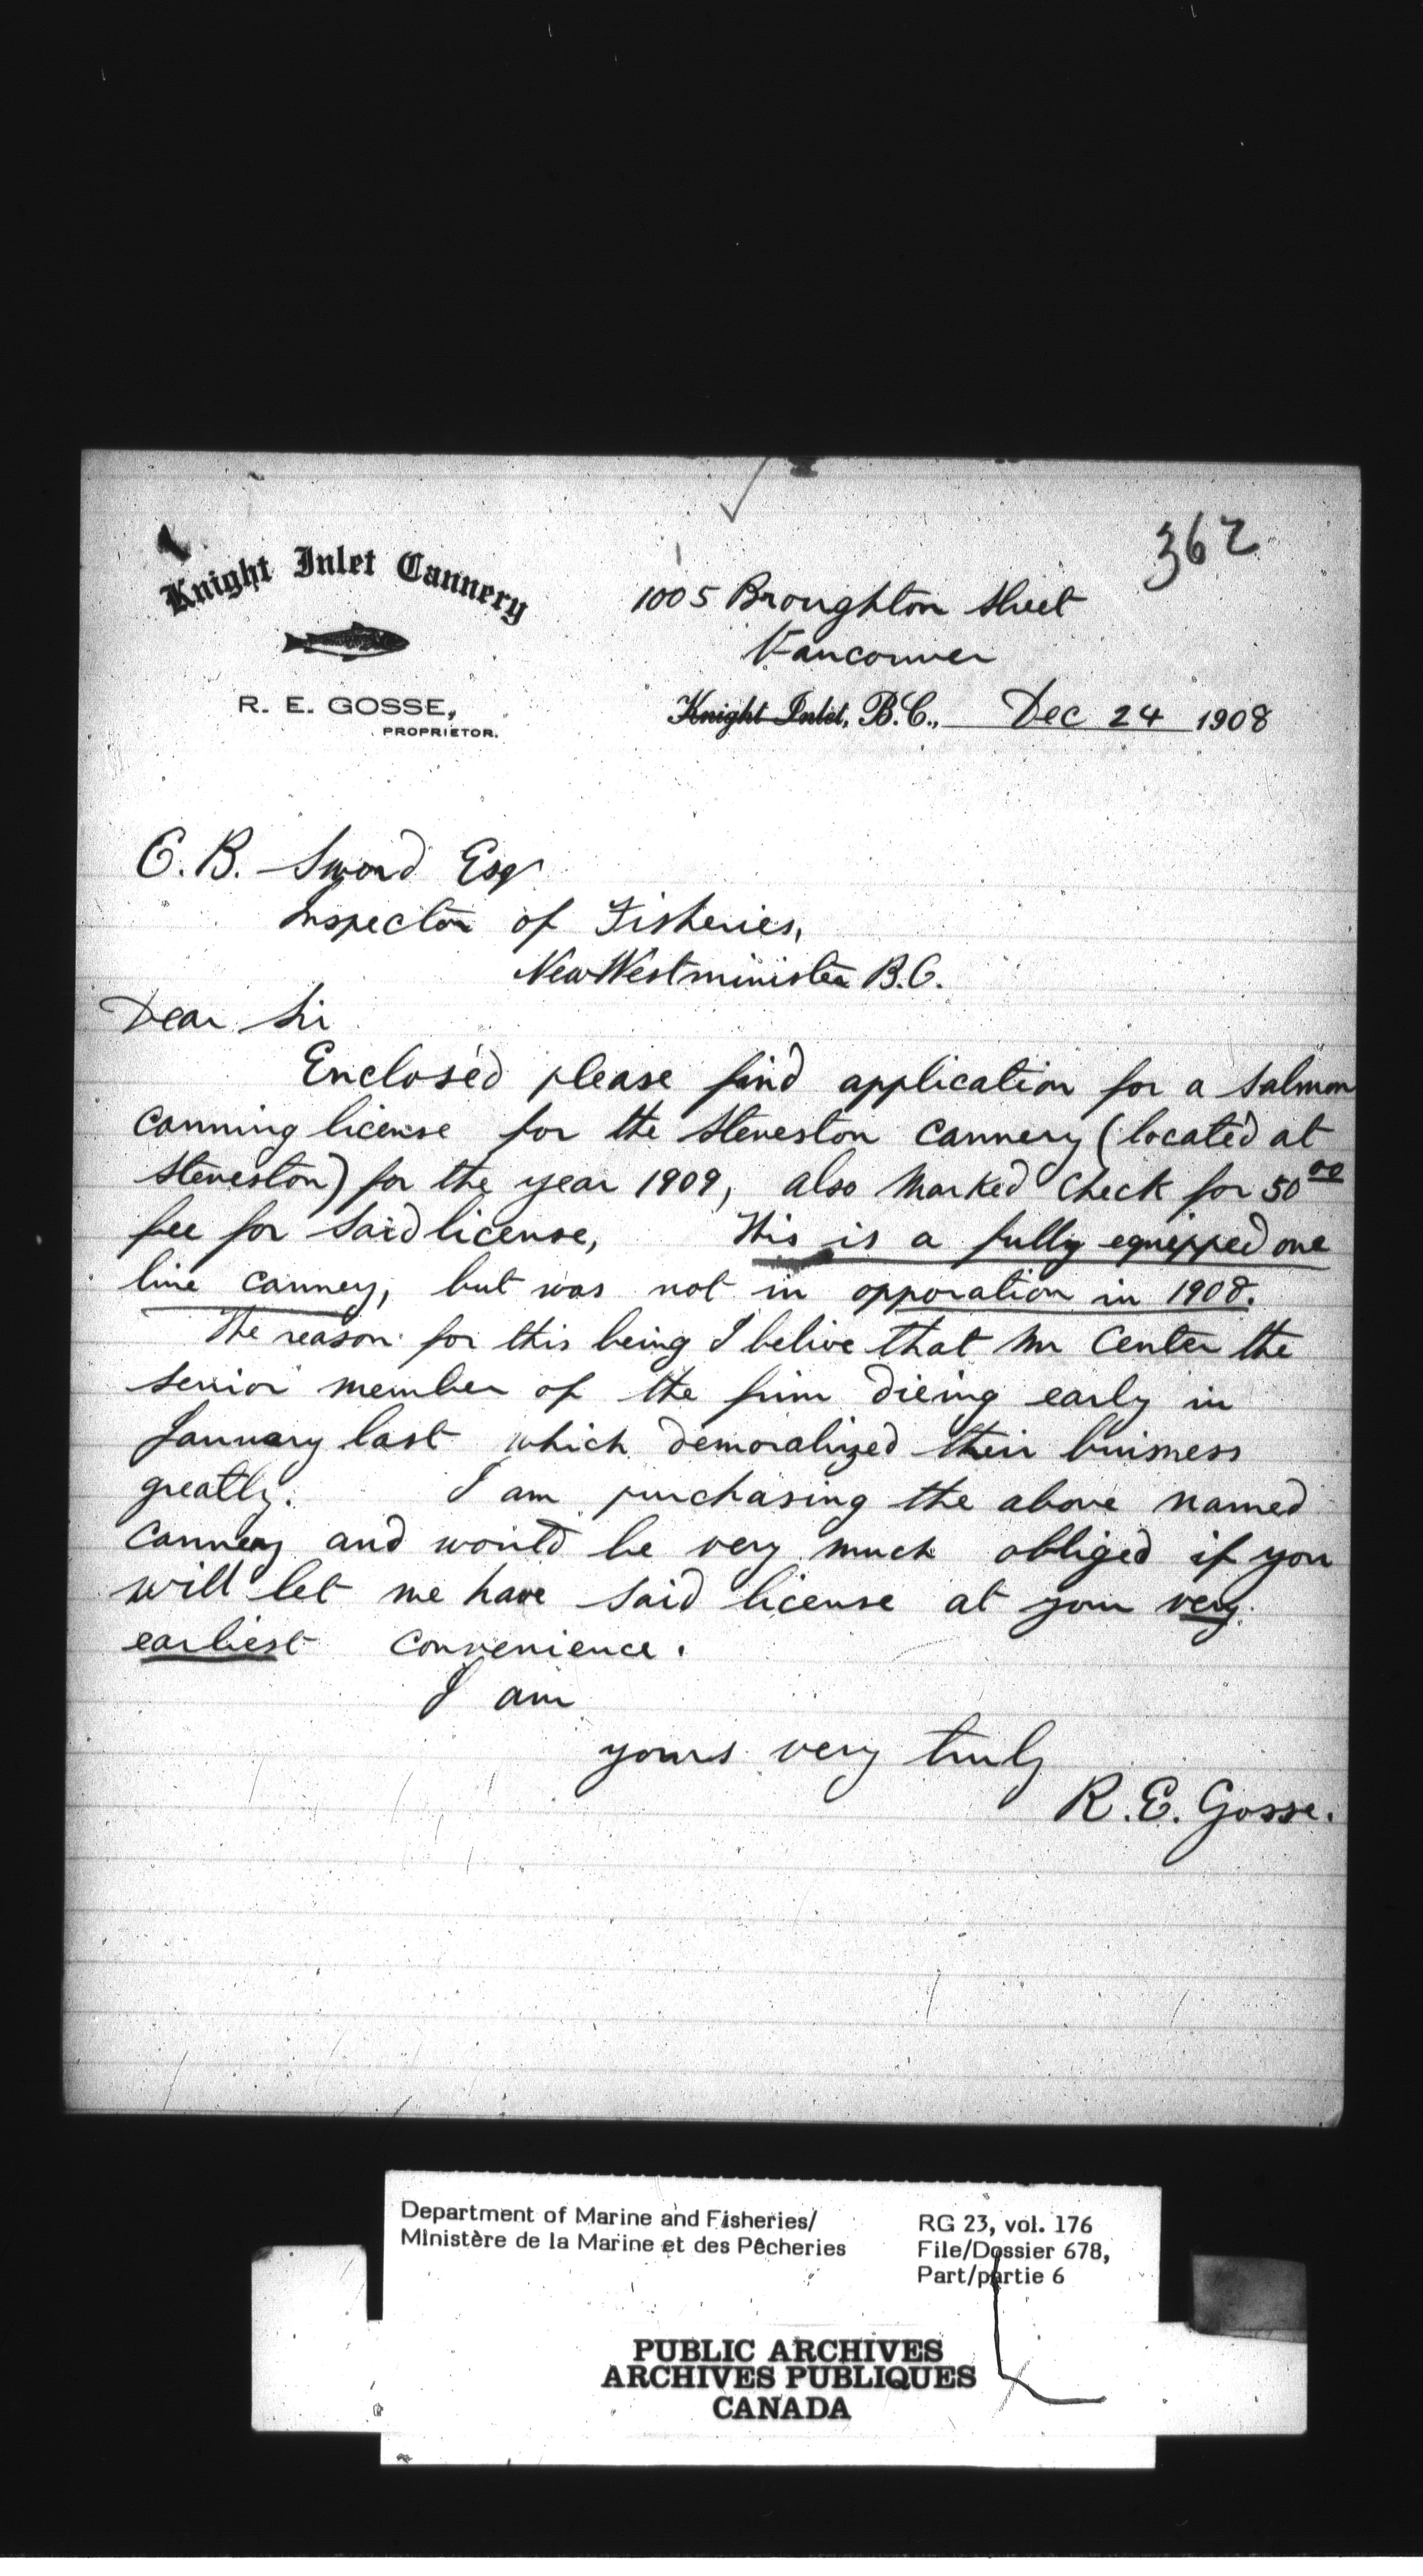 362
Knight Inlet Cannery
R. E. GOSSE,
PROPRIETOR.
1005 Broughton Street
Vancouver
Knight Inlet, B.C., Dec 24 1908
C. B. Sword Esqr
Inspector of Fisheries,
New Westminister B.C.
Dear Sir
Enclosed please find application for a salmon
canning license for the Steveston Cannery (located at
Steveston) for the year 1909, also marked check for 50 00
fee for said license, This is a fully equipped one
line cannery, but was not in opporation in 1908.
The reason for this being I belive that Mr Center the
senior member of the firm dieing early in
January last which demoralized their buisness
greatly. I am purchasing the above named
cannery and would be very much obliged if you
will let me have said license at your very
earliest convenience.
I am
yours very truly
R. E. Gosse.
Department of Marine and Fisheries/
Ministère de la Marine et des Pêcheries
RG 23, vol. 176
File/Dossier 678,
Part/partie 6
PUBLIC ARCHIVES
ARCHIVES PUBLIQUES
CANADA